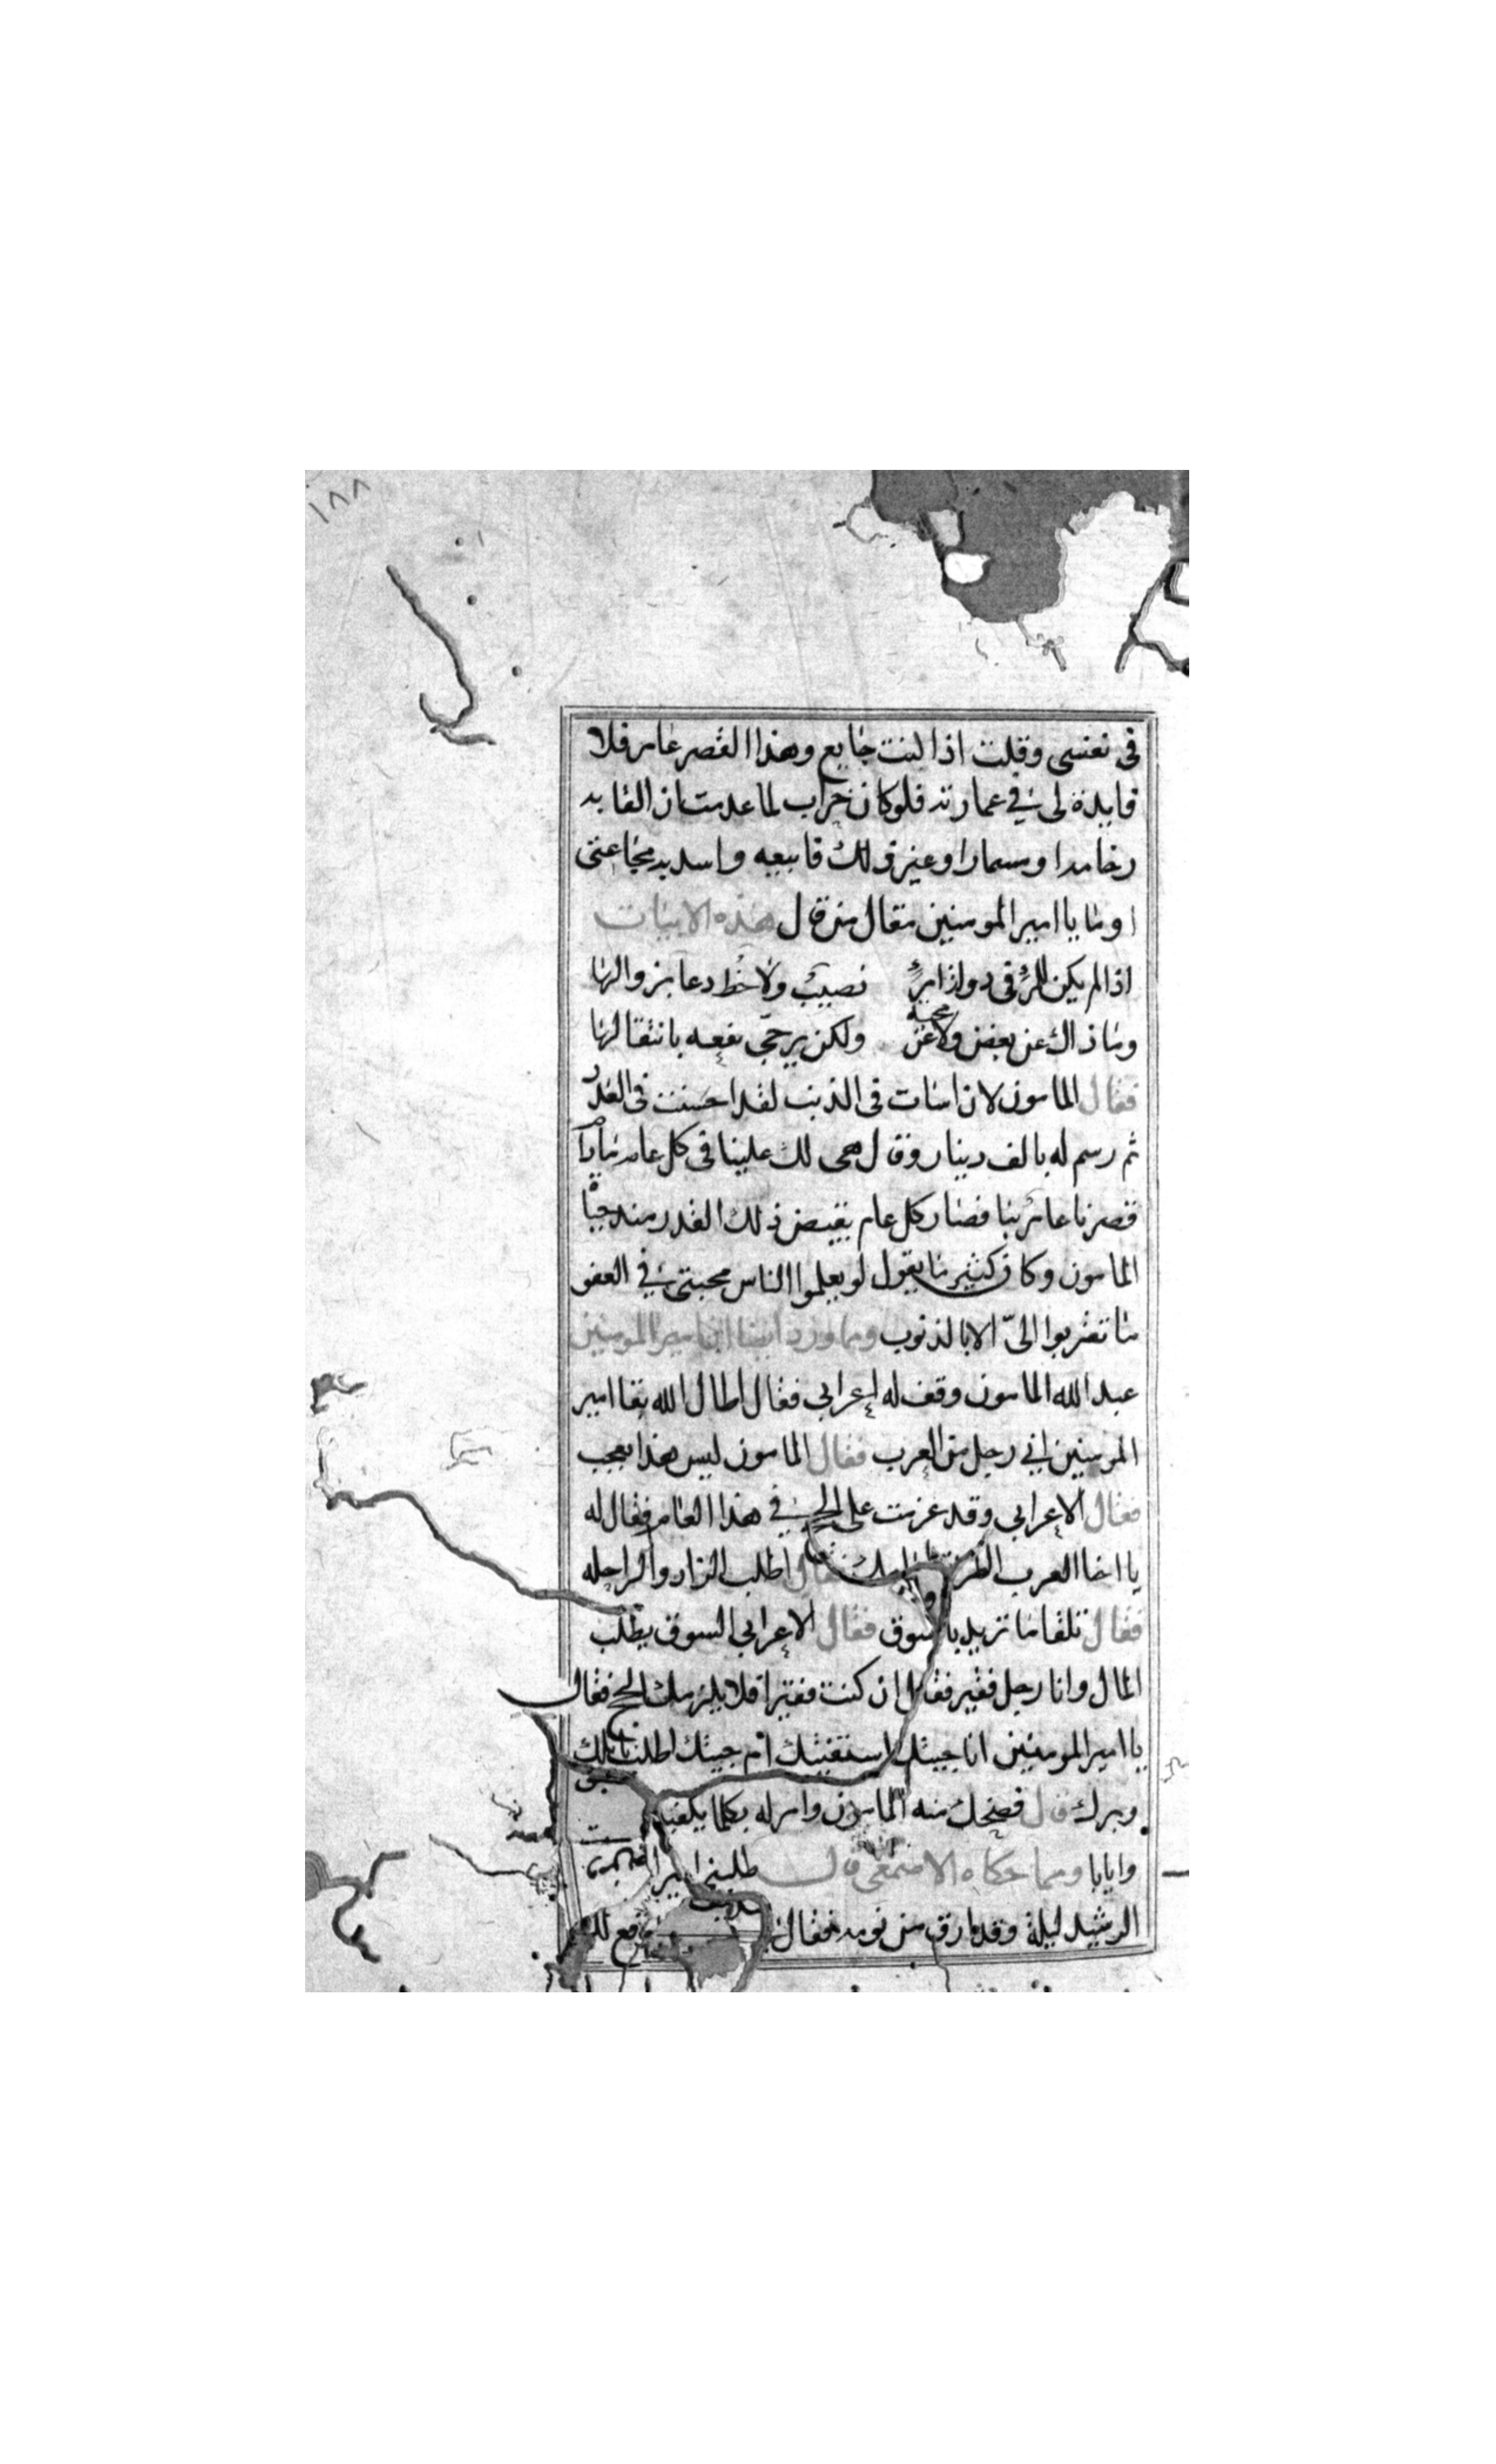 ١٨٨
في نفسى وقلت اذا كنت جايع وهذا القصر عامر فلا
فايدة لى في عمارته فلو كان خراب لما عدمت ان القا به
رخامه او مسمارا وغير ذلك فابيعه واسد به مجاعتى
اوما يا امير المومنين مقال من قال هذه الابيات
اذا لم يكن للمرء في دولة امرئ نصيب ولا حظ دعا بزوالها
وما ذاك عن بغض ولا عن محبة ولكن يرجى نفعه بانتقالها
فقال المامون لان اسات في الذنب لقد احسنت في العذر
ثم رسم له بالف دينار وقال هى لك علينا في كل عام مادام
قصرنا عامر بنا فصار كل عام يقبض ذلك القدر منه حياة
المامون وكان كثير ما يقول لو يعلموا الناس محبتى في العفو
ما تقربوا الىّ الا بالذنوب ومما ورد ايضا ان امير المومنين
عبد الله المامون وقف له اعرابي فقال اطال الله بقا امير
المومنين اني رجل من العرب فقال المامون ليس هذا بعجب
فقال الاعرابي وقد عزمت على الحج في هذا العام فقال له
يا اخا العرب الطريق امامك فقال اطلب الزاد والراحله
فقال تلقا ما تريد بالسوق فقال الاعرابي السوق يطلب
المال وانا رجل فقير فقال ان كنت فقيرا فلا يلزمك الحج فقال
يا امير المومنين انا جيتك استفتيك ام جيتك اطلب نايلك
وبرك قال فضحك منه المامون وامر له بكلما يكفيه
وايابا ومما حكاه الاصمعى قال طلبنى امير المومنين
الرشيد ليلة وقد ارق من نومه فقال